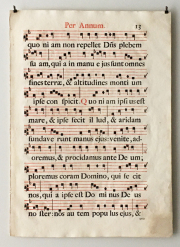 Per Annum. 13
quo ni am non repellet Dñs plebem
su am, qui a in manu e jus sunt omnes
fines terræ, & altitudines montium
ipse con spicit. Quo ni am ipsi us est
mare, & ipse fecit il lud, & aridam
fundave runt manus ejus: venite, ad
oremus, & procidamus ante De um;
ploremus coram Domino, qui fe cit
nos, qui a ipse est Do mi nus De us
no ster: nos au tem popu lus ejus, &